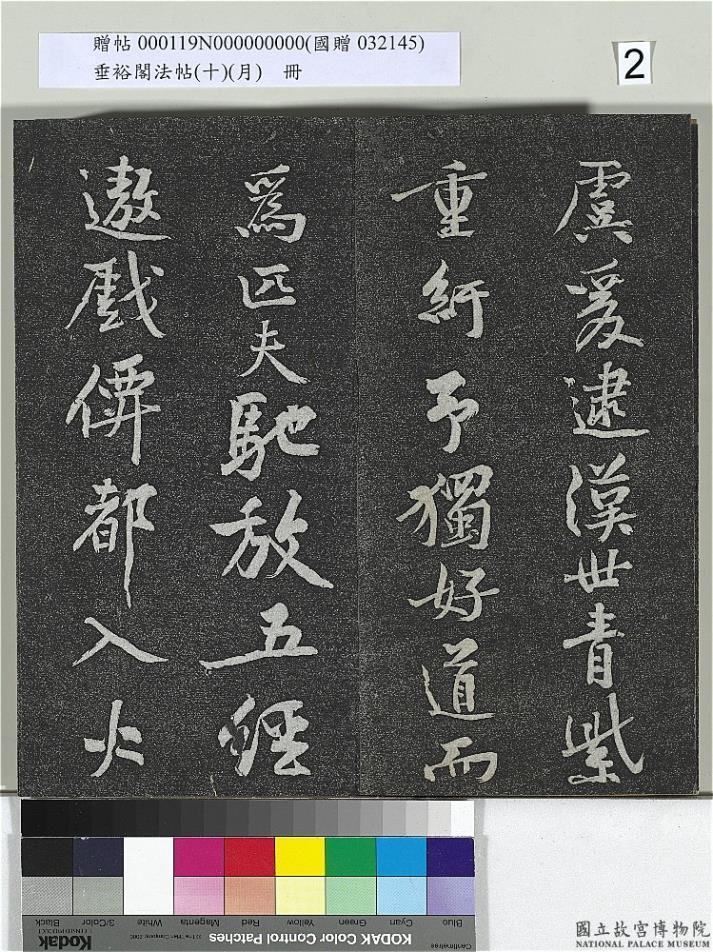 贈帖 000119N000000000(國贈 032145)
垂裕閣法帖(十)(月)　冊
2
虞爰逮漢世青紫
重紆予獨好道而
爲匹夫馳放五經
遨戲儕都入火
Black
3/Color
White
Magenta
Red
Yellow
Green
Cyan
Blue
Kodak
KODAK Color Control Patches
Centimetres
國立故宮博物院
NATIONAL PALACE MUSEUM